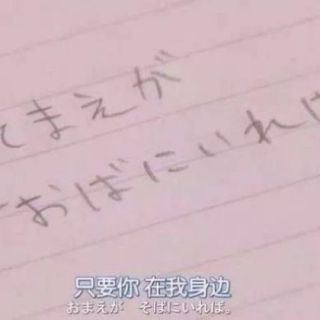 まえが
おばにいれ
只要你 在我身边
おまえが そばにいれば。